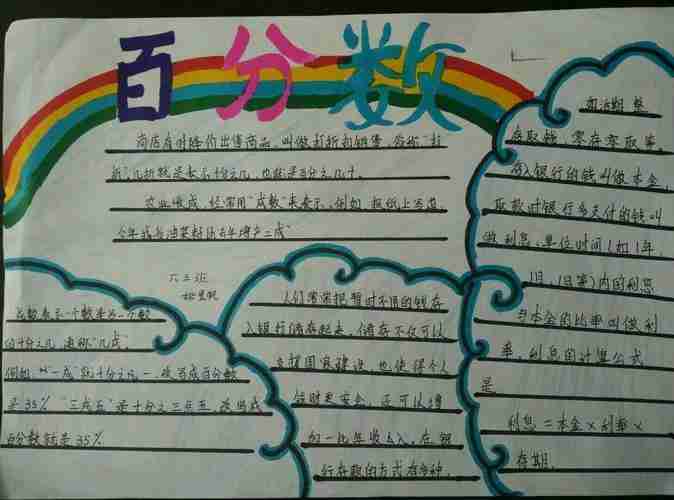 百分数
商店有时降价出售商品，叫做打折扣销售，俗称“打
折”，几折就是表示十分之几，也就是百分之几十。
农业收成，经常用“成数”来表示。例如，报纸上写道，
今年我省油菜籽比去年增产二成”
六三班
成数表示一个数是另一个数
的十分之几，通称“几成”。
例如“一成”就十分之一，改写成百分数
是 35％ “三成五”是十分之三点五，改写成
百分数就是35％
人们常常把暂时不用的钱存
入银行储存起来，储存不仅可以
支援国家建设，也使得个人
钱财更安全，还可以增
加一些年收入，在银
行存款的方式有多种，
如活期、整
存取钱、零存零取等。
存入银行的钱叫做本金，
取款时银行多支付的钱叫
做利息，单位时间（如1年、
1月、1日等）内的利息
与本金的比率叫做利
率，利息的计算公式
是
利息＝本金×利率×
存期.